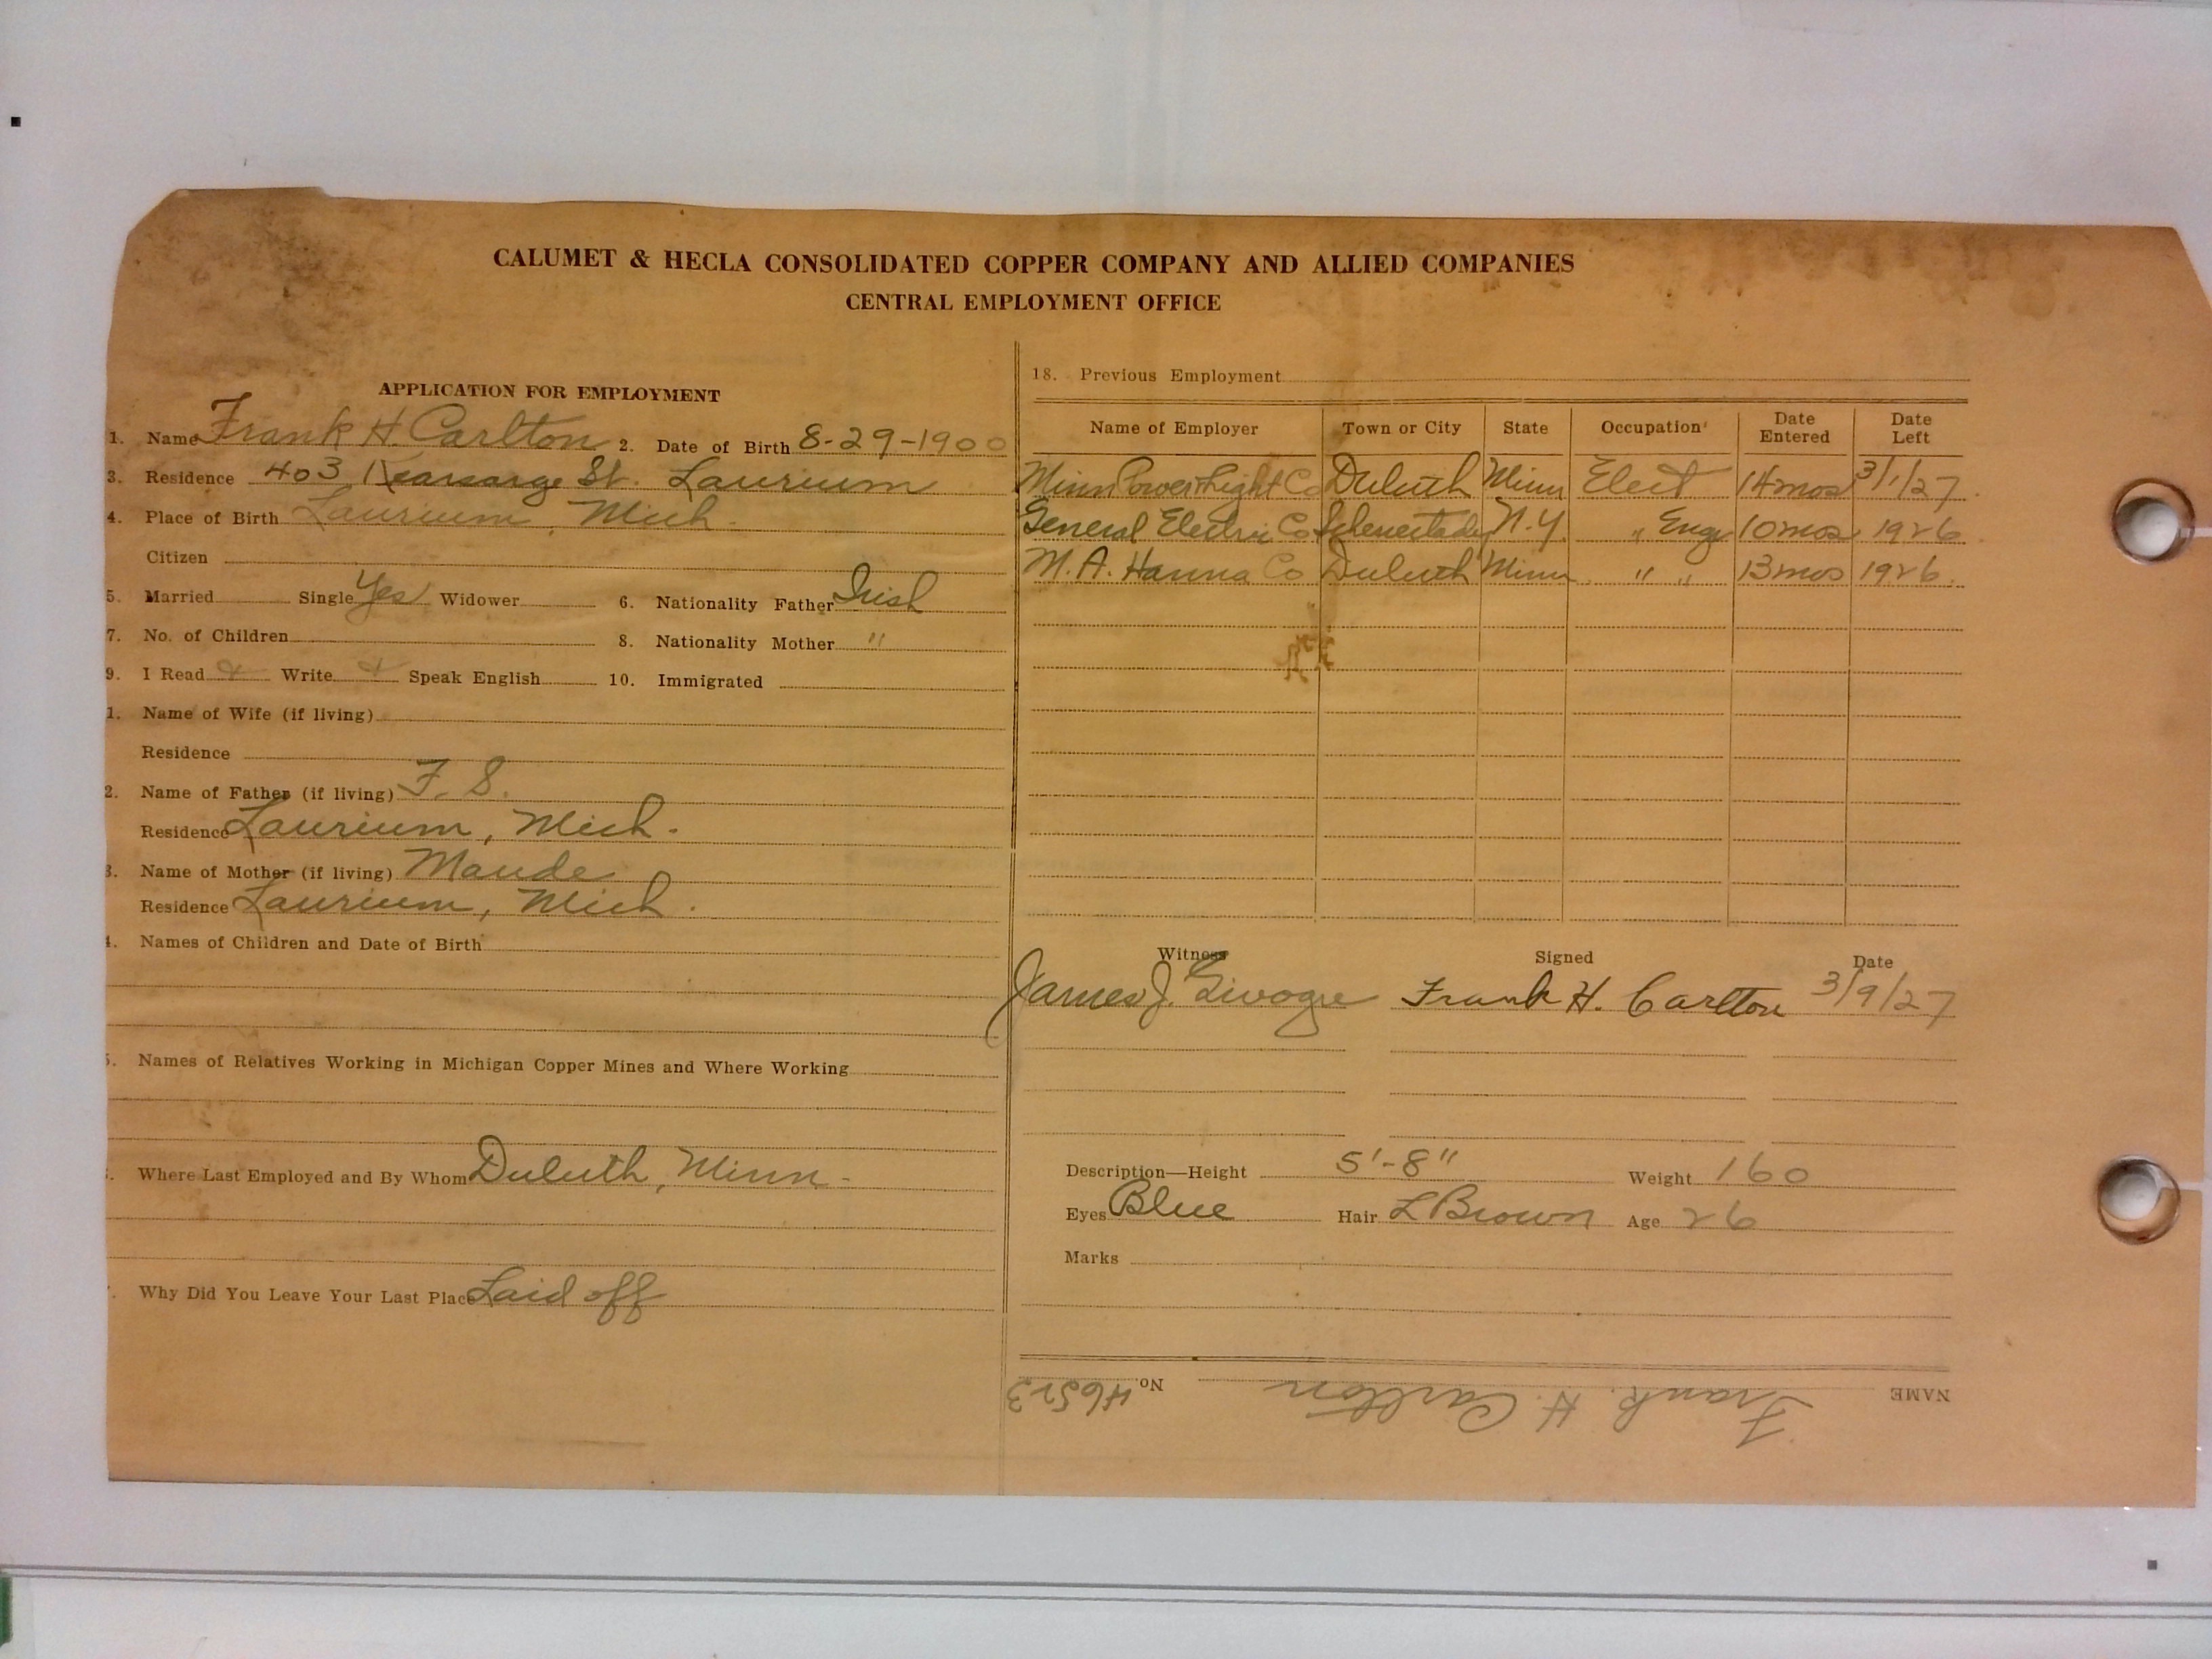 CALUMET & HECLA CONSOLIDATED COPPER COMPANY AND ALLIED COMPANIES
CENTRAL EMPLOYMENT OFFICE
APPLICATION FOR EMPLOYMENT
1. Name Frank H. Carlton 2. Date of Birth 8-29-1900
3. Residence 403 Kearsarge St. Laurium
4. Place of Birth Laurium, Mich.
Citizen
5. Married Single Yes Widower 6. Nationality Father Irish
7. No. of Children 8. Nationality Mother "
9. I Read Write Speak English 10. Immigrated
1. Name of Wife (if living)
Residence
2. Name of Father (if living) F. S.
Residence Laurium, Mich.
3. Name of Mother (if living) Maude
Residence Laurium, Mich.
4. Names of Children and Date of Birth
5. Names of Relatives Working in Michigan Copper Mines and Where Working
. Where Last Employed and By Whom Duluth, Minn.
. Why Did You Leave Your Last Place Laid off
18. Previous Employment
Name of Employer Town or City State Occupation Date Entered Date Left
Minn Power & Light Co Duluth Minn Elect 14 mos 3/1/27
General Electric Co Schenectady N.Y. " Engr 10 mos 1926
M. A. Hanna Co Duluth Minn " " 13 mos 1926
Witness Signed Date
James J. Frank H. Carlton 3/9/27
Description—Height 5'-8" Weight 160
Eyes Blue Hair L Brown Age 26
Marks
NAME Frank H. Carlton No. 46523